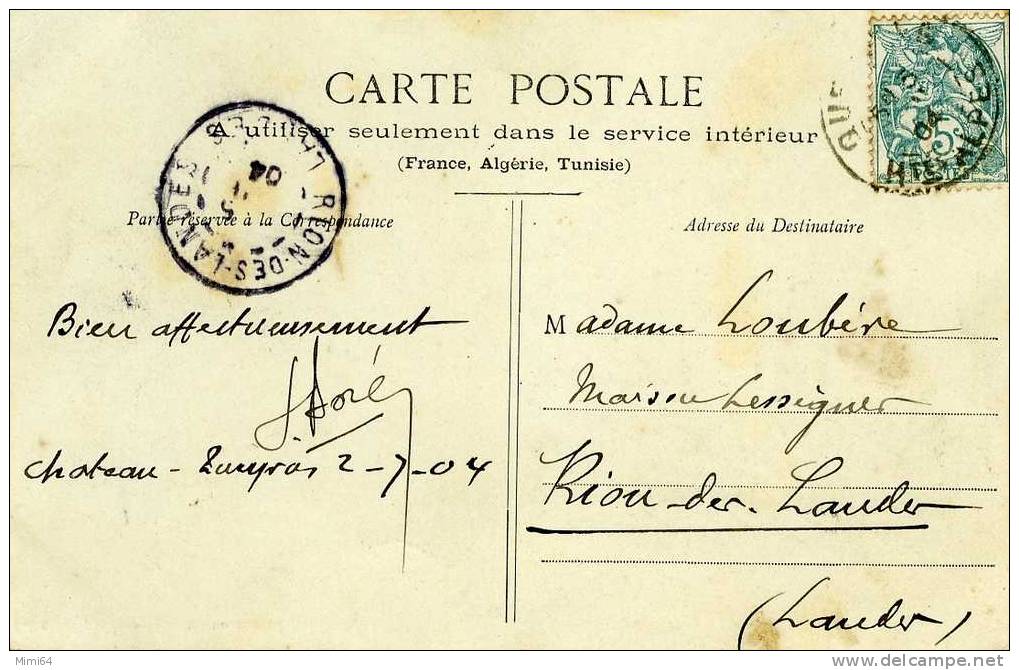 CARTE POSTALE
A utiliser seulement dans le service intérieur
(France, Algérie, Tunisie)
RION-DES-LANDES
LANDES
04
Partie réservée à la Correspondance
Bien affectueusement
chateau - 2-7-04
Adresse du Destinataire
Madame Loubère
Maison
Rion-des-Landes
(Landes)
04
5
POSTES
Mimi64
www.delcampe.net